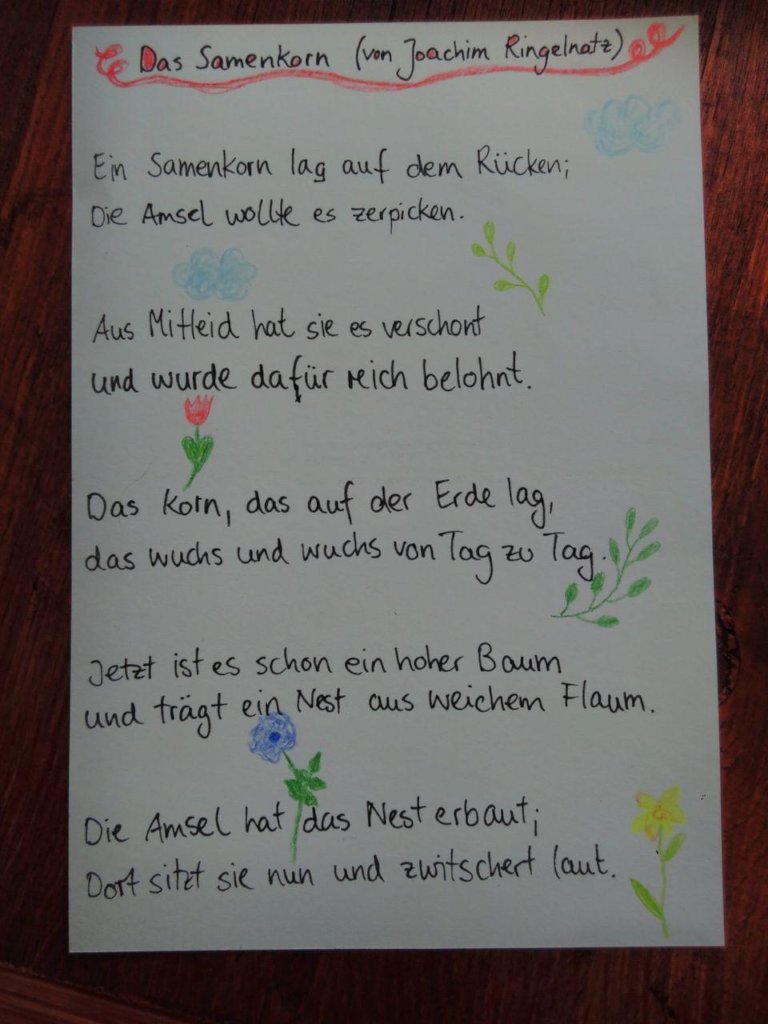 Das Samenkorn (von Joachim Ringelnatz)
Ein Samenkorn lag auf dem Rücken;
Die Amsel wollte es zerpicken.
Aus Mitleid hat sie es verschont
und wurde dafür reich belohnt.
Das Korn, das auf der Erde lag,
das wuchs und wuchs von Tag zu Tag.
Jetzt ist es schon ein hoher Baum
und trägt ein Nest aus weichem Flaum.
Die Amsel hat das Nest erbaut;
Dort sitzt sie nun und zwitschert laut.